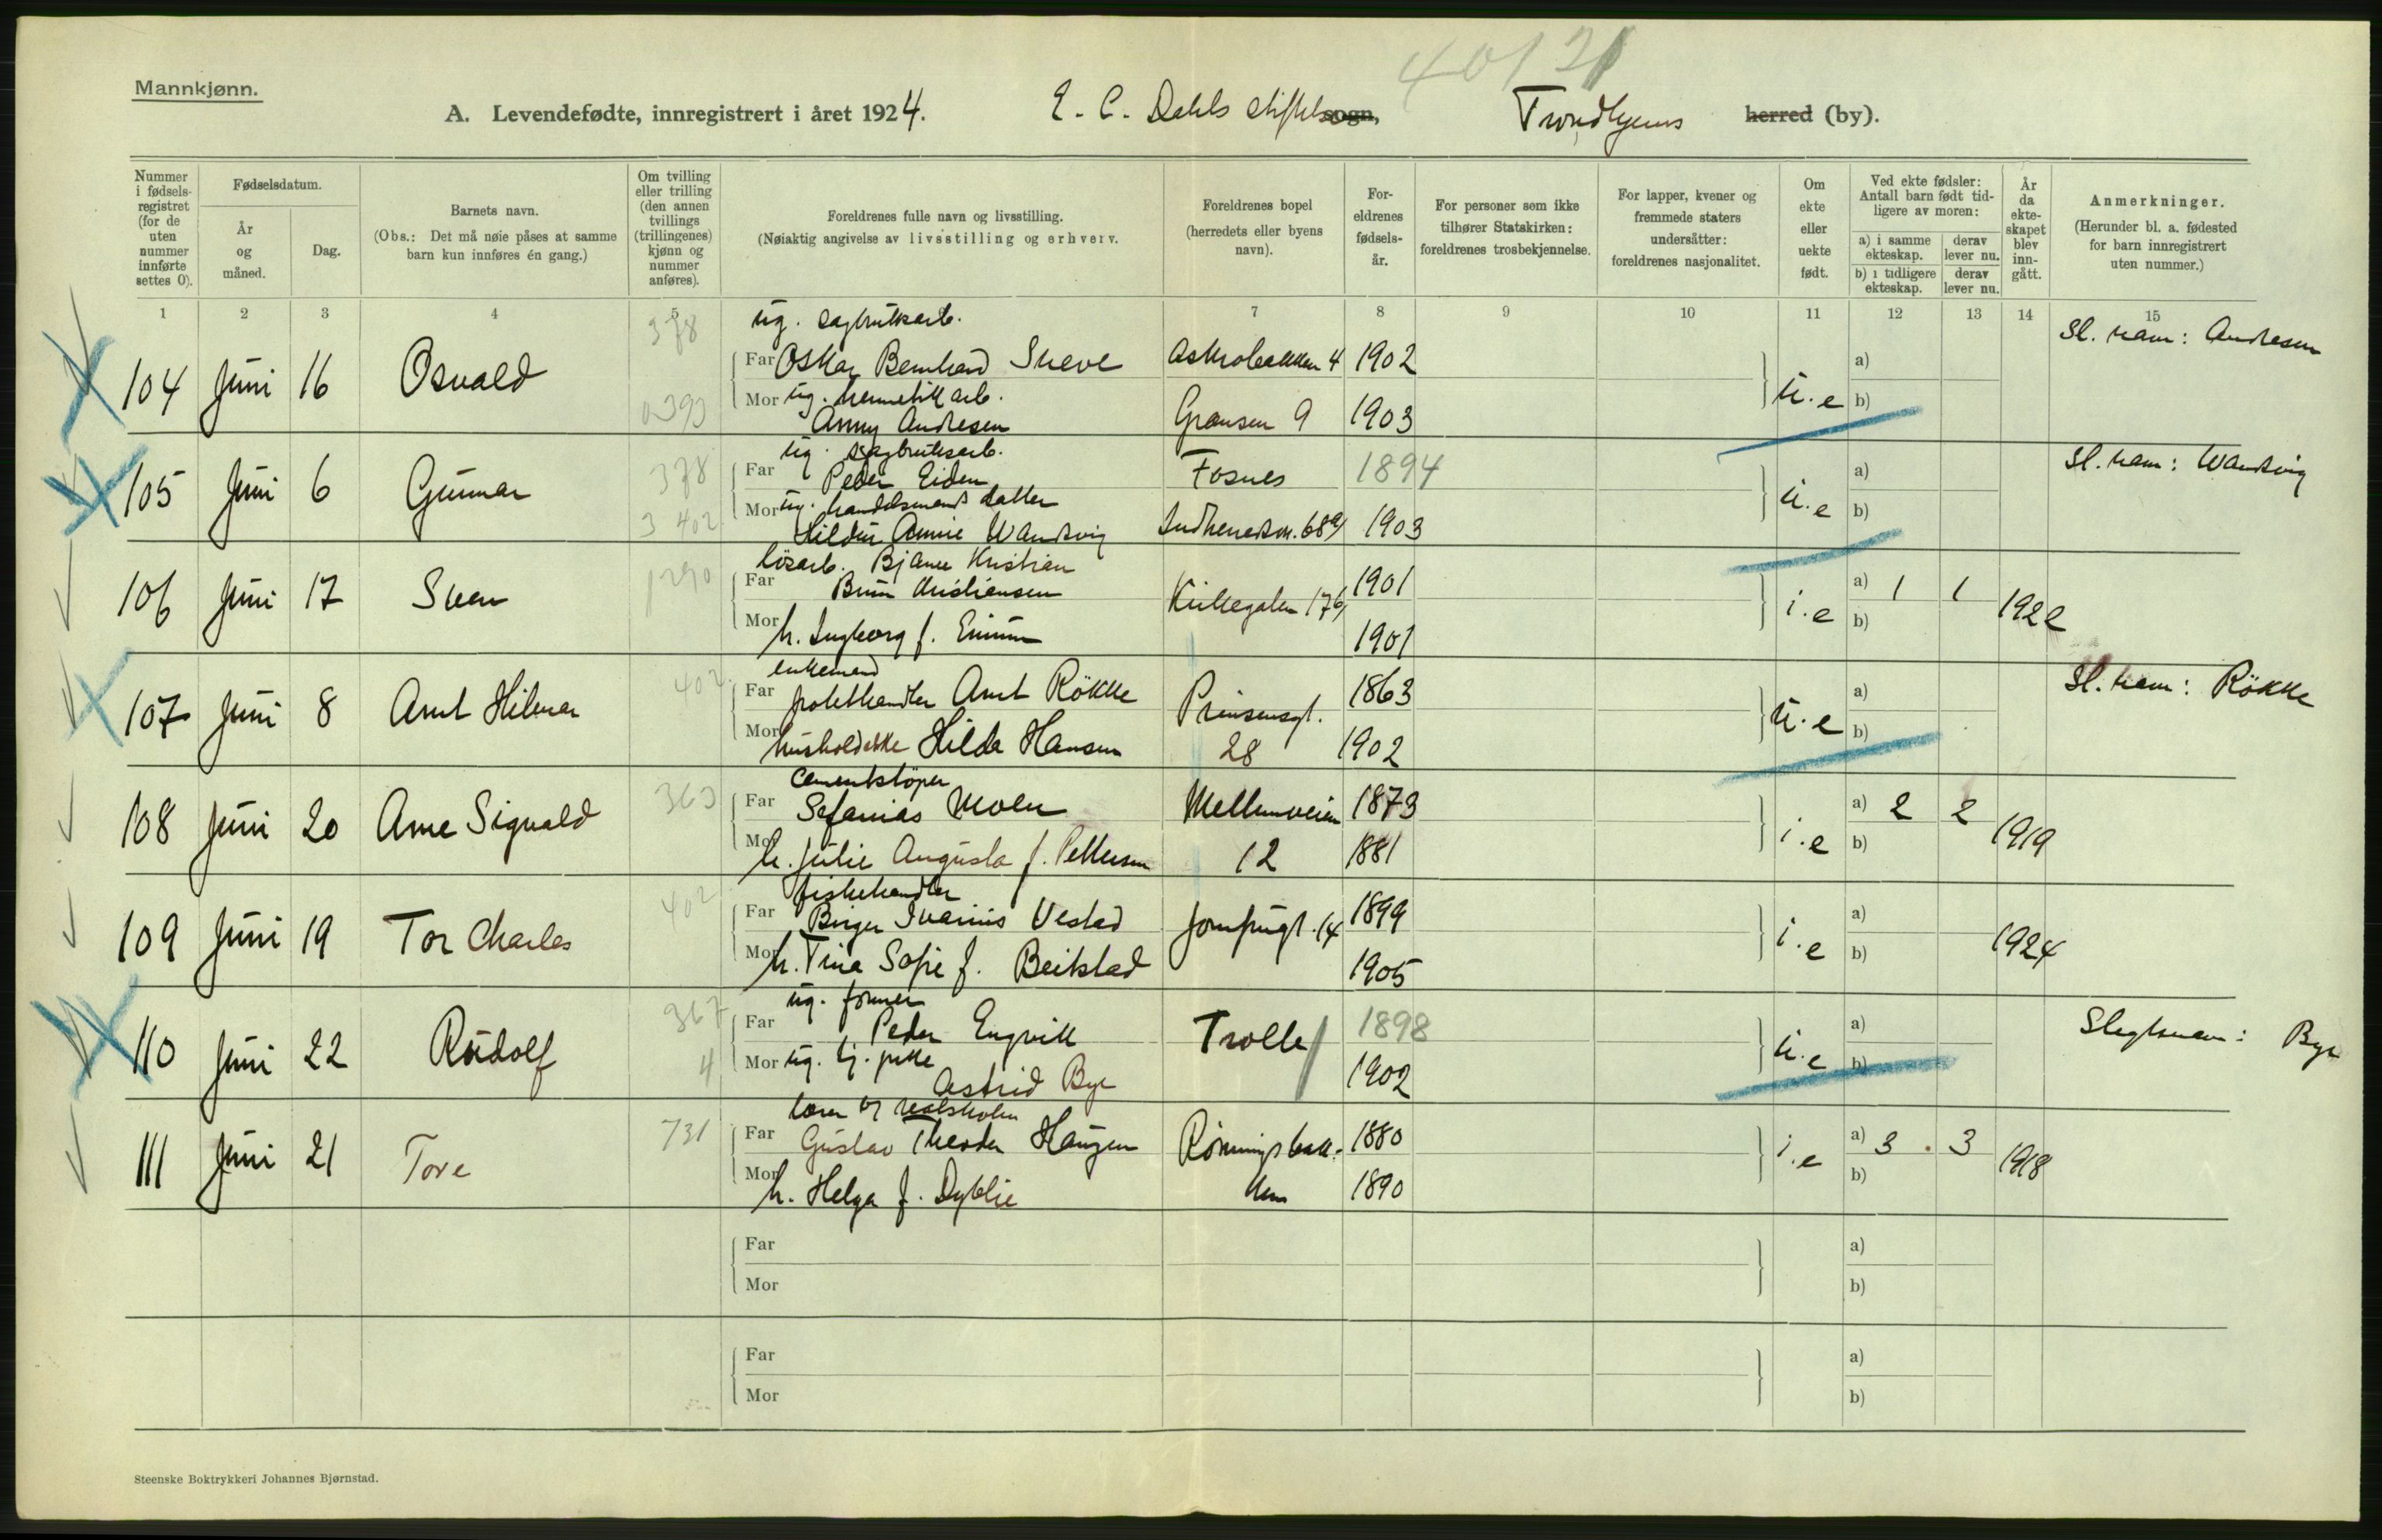 40/21
Mannkjønn.
A. Levendefødte, innregistrert i året 1924. E. C. Dahls stiftelse sogn, Trondhjems herred (by).
Nummer i fødsels-registret (for de uten nummer innførte settes 0).
Fødselsdatum.
År og måned.
Dag.
Barnets navn.
(Obs.: Det må nøie påses at samme barn kun innføres én gang.)
Om tvilling eller trilling (den annen tvillings (trillingenes) kjønn og nummer anføres).
Foreldrenes fulle navn og livsstilling.
(Nøiaktig angivelse av livsstilling og erhverv.
Foreldrenes bopel (herredets eller byens navn).
For-eldrenes fødsels-år.
For personer som ikke tilhører Statskirken: foreldrenes trosbekjennelse.
For lapper, kvener og fremmede staters undersåtter: foreldrenes nasjonalitet.
Om ekte eller uekte født.
Ved ekte fødsler: Antall barn født tid-ligere av moren:
a) i samme ekteskap.
derav lever nu.
b) i tidligere ekteskap.
derav lever nu.
År da ekte-skapet blev inn-gått.
Anmerkninger.
(Herunder bl. a. fødested for barn innregistrert uten nummer.)
1 2 3 4 5 7 8 9 10 11 12 13 14 15
378 ug. sagbruksarb. Sl. navn: Andresen
104 Juni 16 Osvald Far Oskar Bernhard Sneve Asknobakken 4 1902 a)
0393 Mor ug. hermetikkarb. u.e b)
Anny Andresen Gransen 9 1903
ug. sagbruksarb. Sl. navn: Wandvig
105 Juni 6 Gunnar 378 Far Peder Eiden Fosnes 1894 a)
3 402 Mor ug. handelsmands datter u.e b)
Hildur Annie Wandvig Indherredsv. 68a/ 1903
løsarb. Bjarne Kristian
106 Juni 17 Sven 1290 Far Brun Kristiansen Kirkegaten 17b/ 1901 i.e a) 1 1 1922
Mor h. Ingeborg f. 1901 b)
enkemand Sl. navn: Røkke
107 Juni 8 Arnt Hilmar 402 Far Arnt Røkke Prinsensgt. 1863 u.e a)
Mor Hilda Hansen 28 1902 b)
cementstøper
108 Juni 20 Arne Sigvald 363 Far Sefanias Moen Mellemveien 1873 i.e a) 2 2 1919
Mor h. Julie Augusta f. Pettersen 12 1881 b)
fiskehandler
109 Juni 19 Tor Charles 402 Far Birger Ivarius Vestad Jomfrugt. 14 1899 i.e a) 1924
Mor h. Tina Sofie f. Beitstad 1905 b)
ug. former Slegtsnavn: Bye
110 Juni 22 Rudolf 367 Far Peder Engvik Trolla 1898 u.e a)
4 Mor ug. tj. pike b)
Astrid Bye 1902
lærer v/ realskolen
111 Juni 21 Tore 731 Far Gustav Theodor Haugen Rønningsbak- 1880 i.e a) 3 3 1918
Mor h. Helga f. Dyblie ken 1890 b)
Far a)
Mor b)
Far a)
Mor b)
Steenske Boktrykkeri Johannes Bjørnstad.